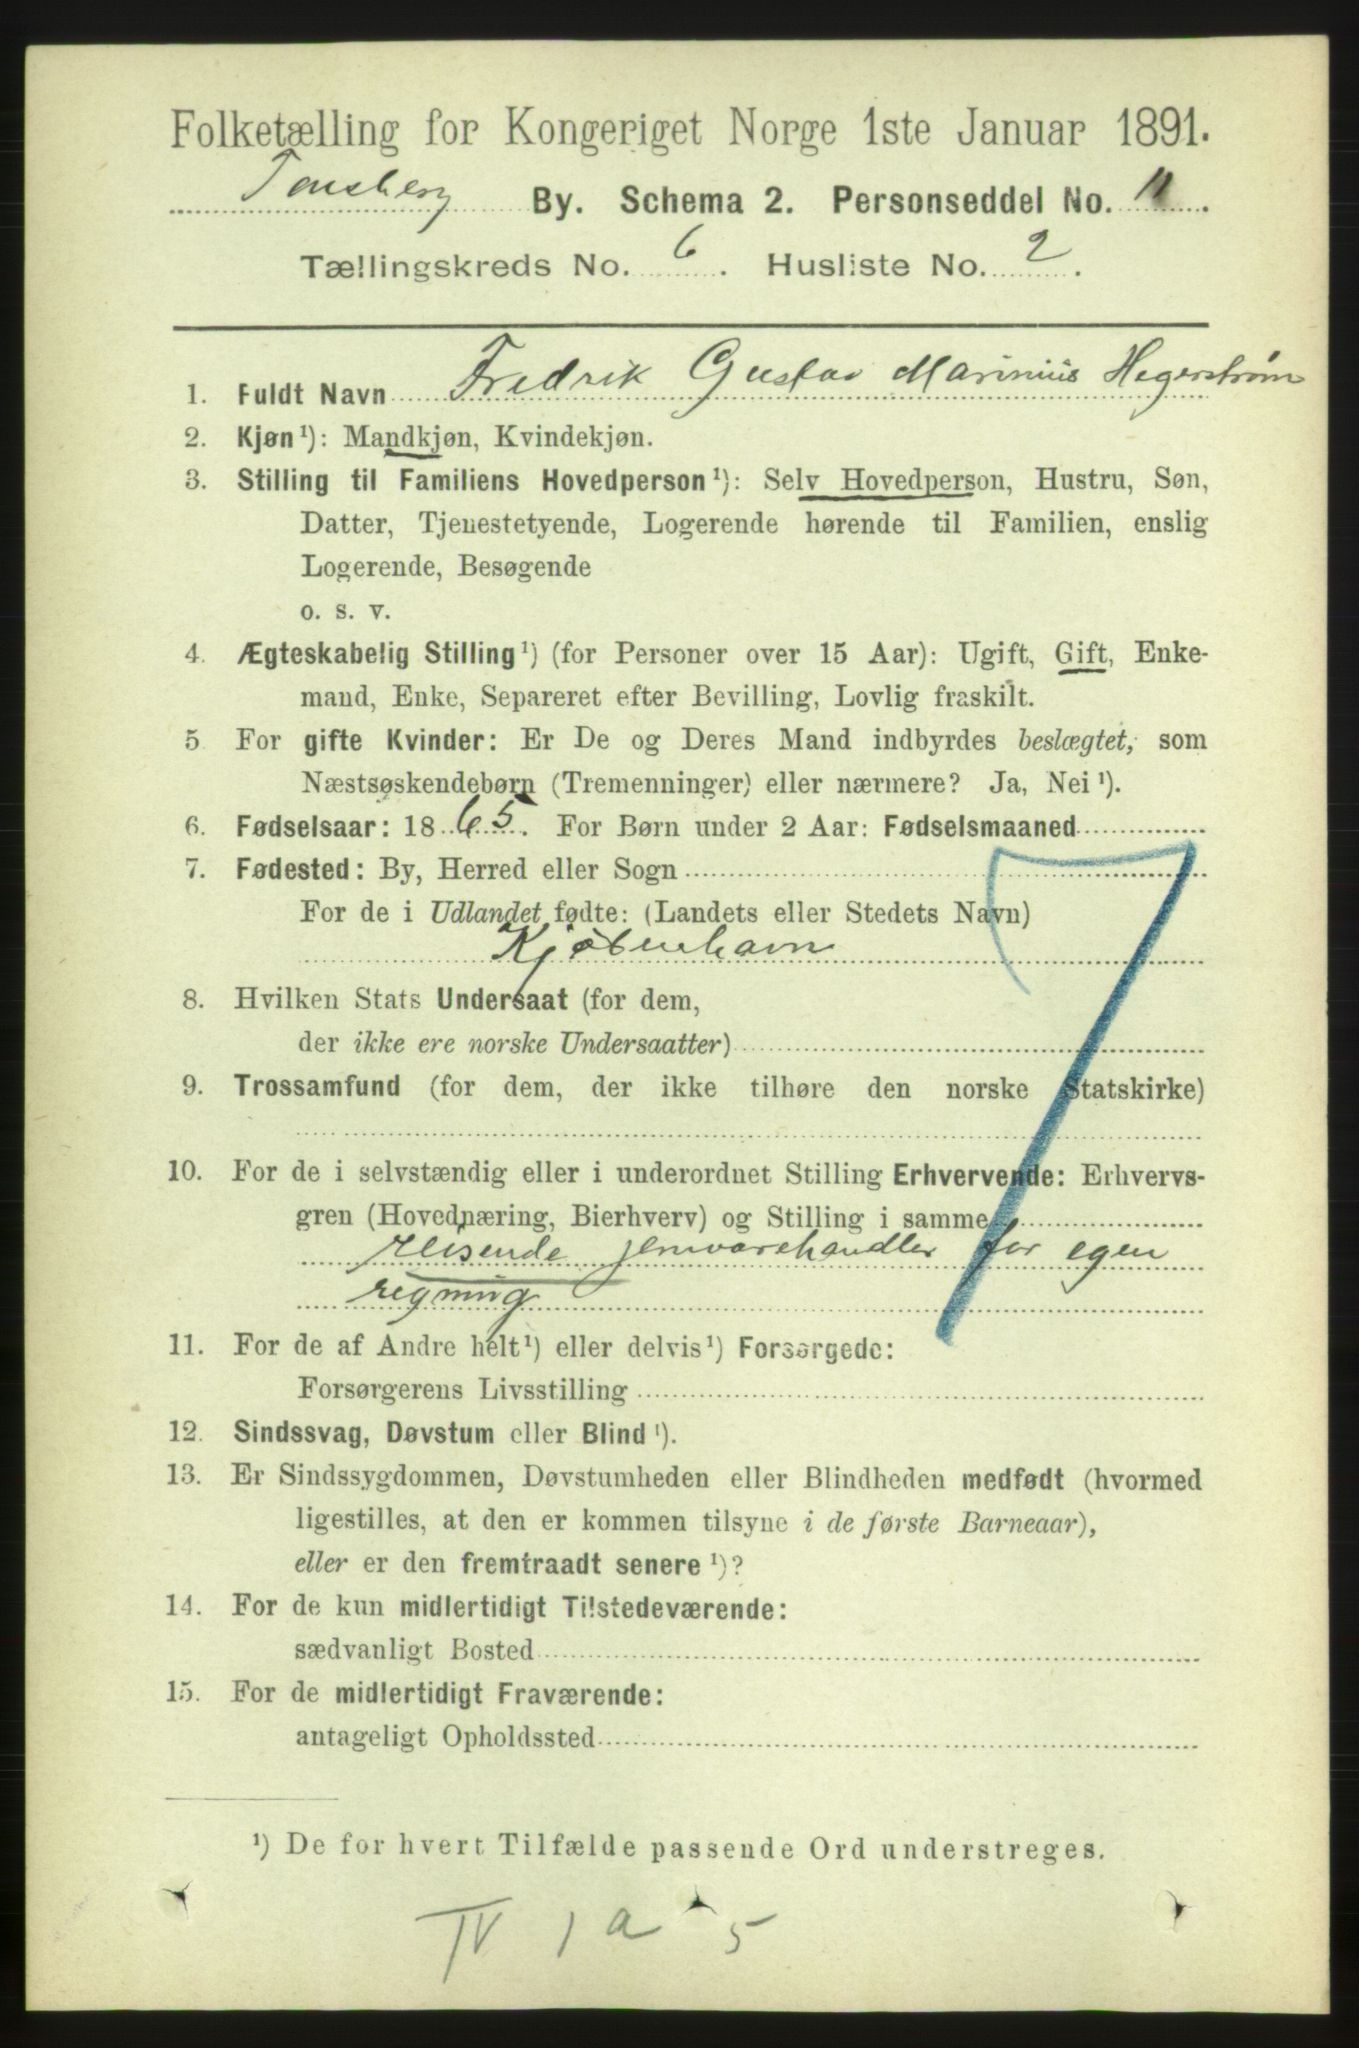 Folketælling for Kongeriget Norge 1ste Januar 1891.
Tønsberg By. Schema 2. Personseddel No. 11.
Tællingskreds No. 6. Husliste No. 2.
1. Fuldt Navn Fredrik Gustav Marinius Hegerstrøm
2. Kjøn ¹): Mandkjøn, Kvindekjøn.
3. Stilling til Familiens Hovedperson ¹): Selv Hovedperson, Hustru, Søn,
Datter, Tjenestetyende, Logerende hørende til Familien, enslig
Logerende, Besøgende
o. s. v.
4. Ægteskabelig Stilling ¹) (for Personer over 15 Aar): Ugift, Gift, Enke-
mand, Enke, Separeret efter Bevilling, Lovlig fraskilt.
5 For gifte Kvinder: Er De og Deres Mand indbyrdes beslægtet, som
Næstsøskendebørn (Tremenninger) eller nærmere? Ja, Nei ¹).
6. Fødselsaar: 1865. For Børn under 2 Aar: Fødselsmaaned
7. Fødested: By, Herred eller Sogn
For de i Udlandet fødte: (Landets eller Stedets Navn)
Kjøbenhavn
8. Hvilken Stats Undersaat (for dem,
der ikke ere norske Undersaatter)
9. Trossamfund (for dem, der ikke tilhøre den norske Statskirke)
10. For de i selvstændig eller i underordnet Stilling Erhvervende: Erhvervs-
gren (Hovednæring, Bierhverv) og Stilling i samme
reisende jernvarehandler for egen
regning
11. For de af Andre helt ¹) eller delvis ¹) Forsørgede:
Forsørgerens Livsstilling
12. Sindssvag, Døvstum eller Blind ¹).
13. Er Sindssygdommen, Døvstumheden eller Blindheden medfødt (hvormed
ligestilles, at den er kommen tilsyne i de første Barneaar),
eller er den fremtraadt senere ¹)?
14. For de kun midlertidigt Tilstedeværende:
sædvanligt Bosted
15. For de midlertidigt Fraværende:
antageligt Opholdssted
¹) De for hvert Tilfælde passende Ord understreges.
IV 1 a 5